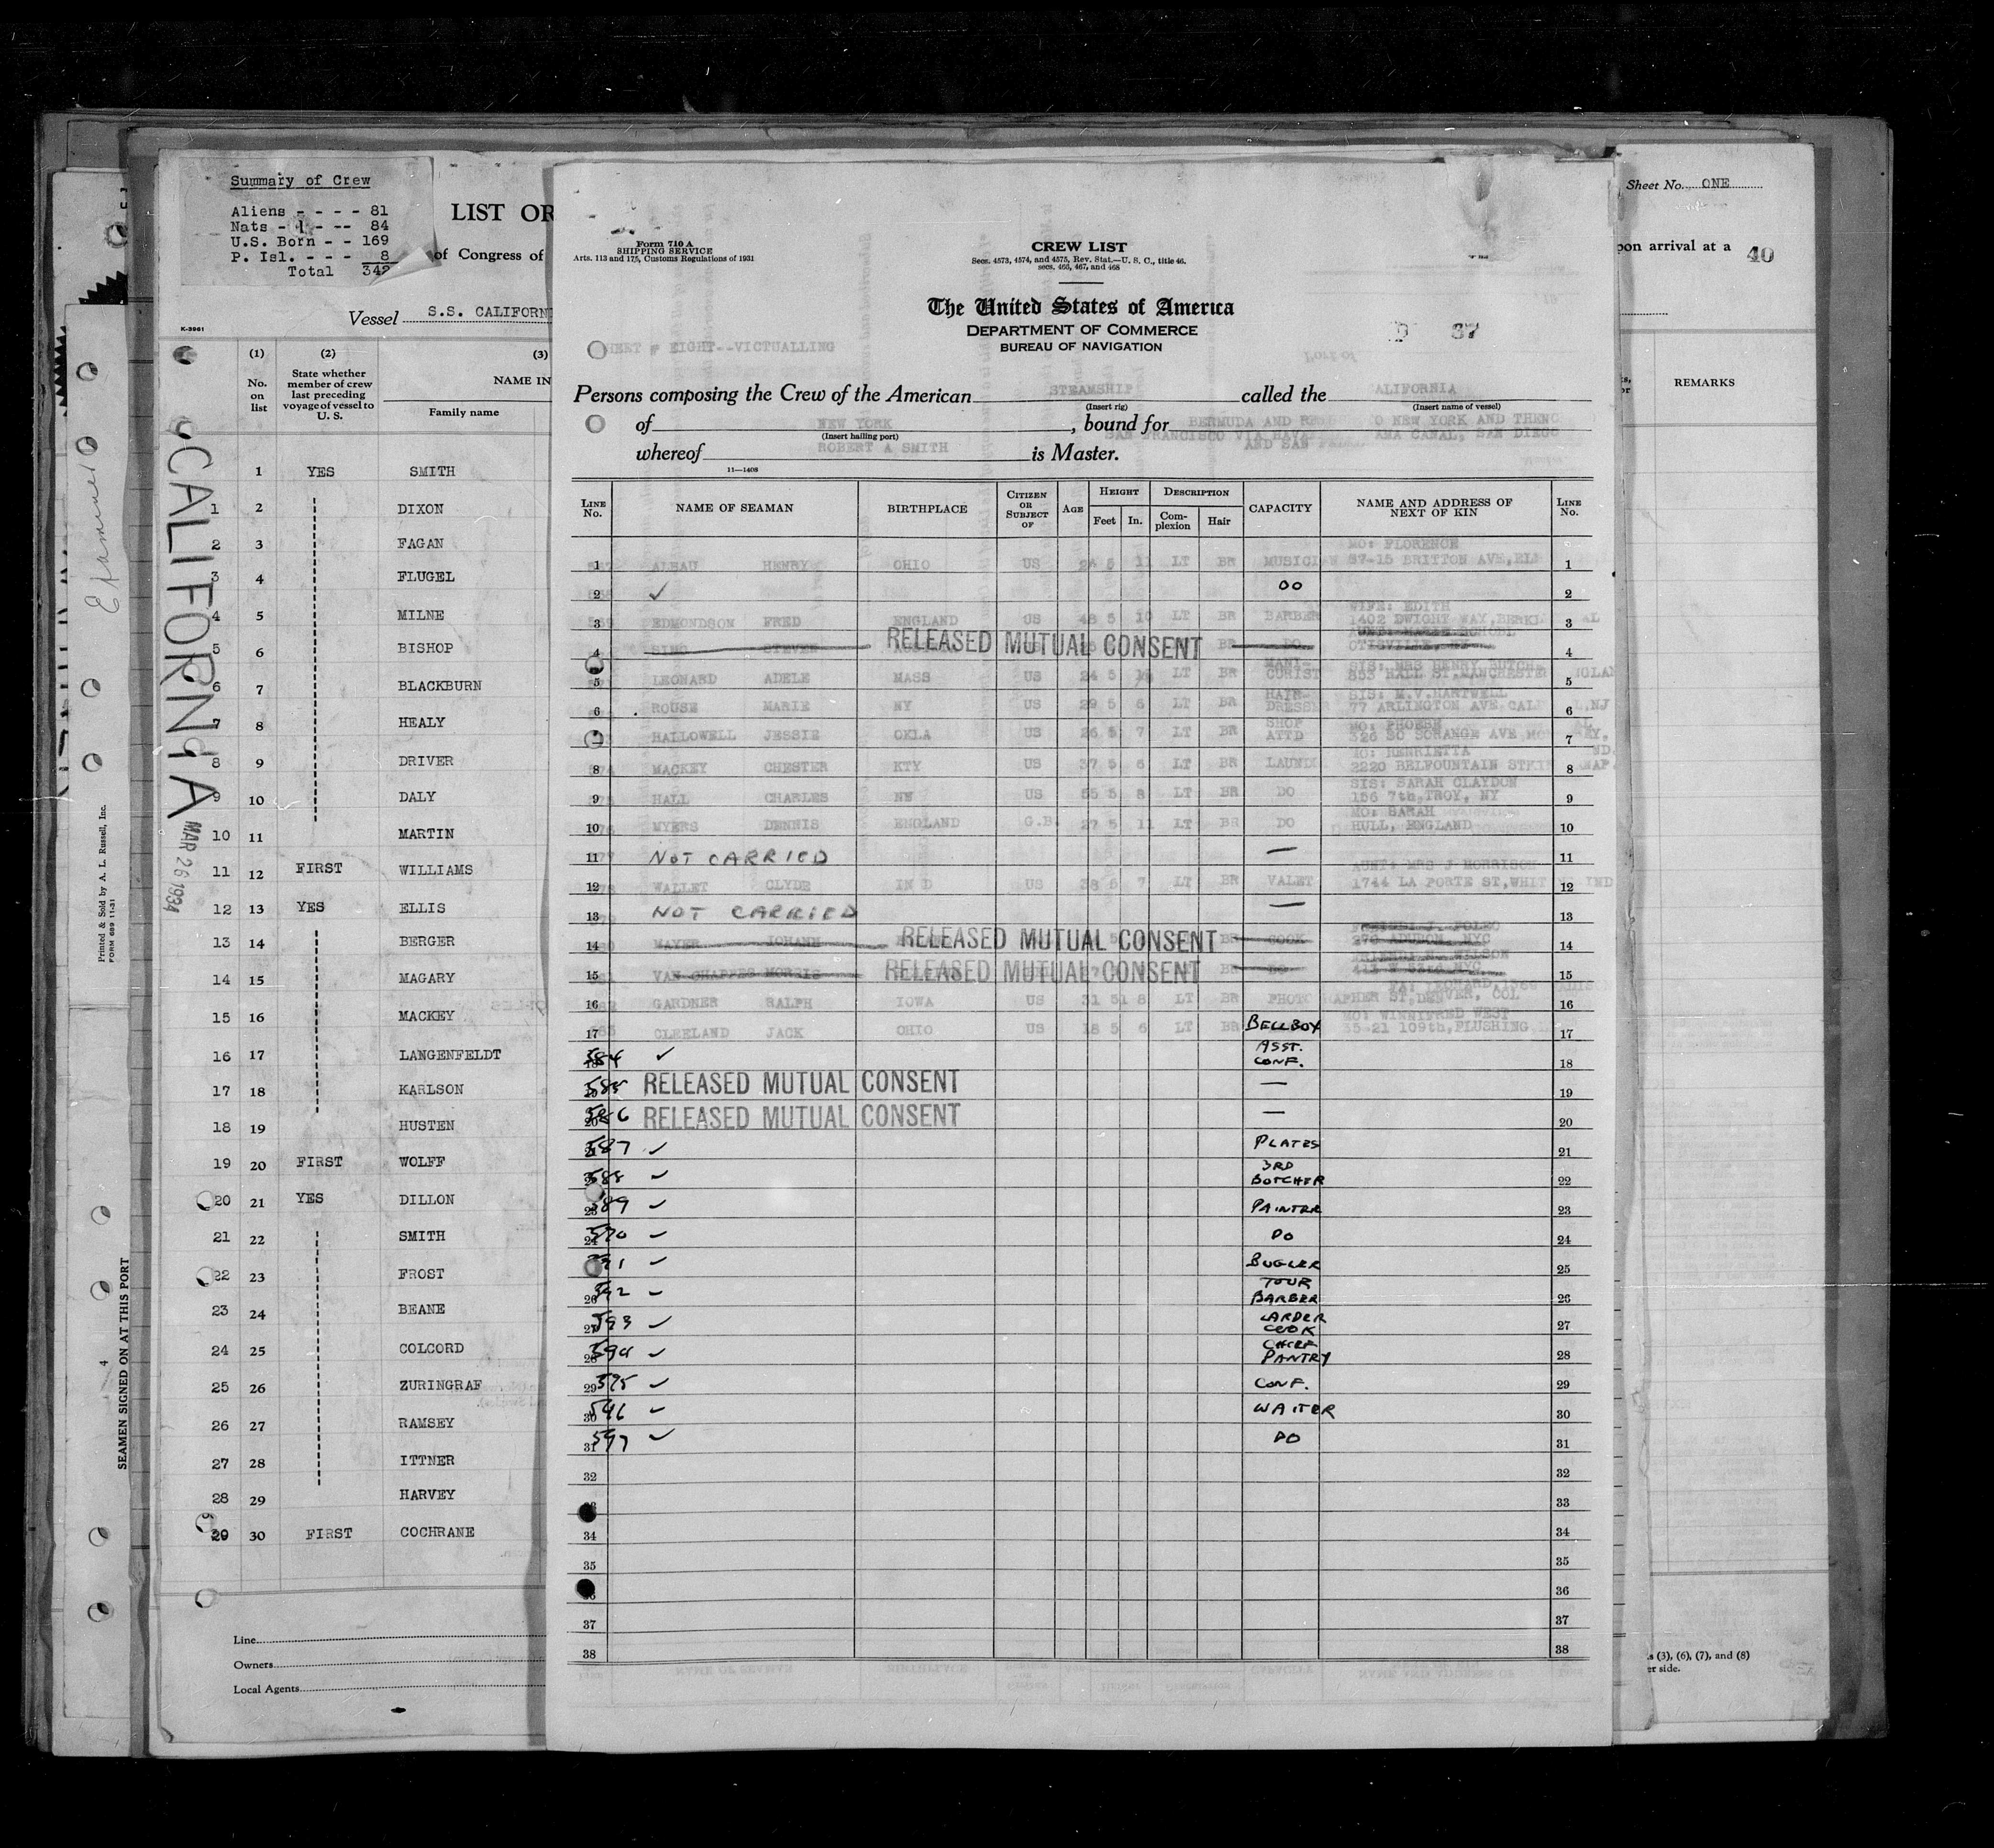 Summary of Crew
Aliens - - - - 81
Nats - 1 - -- 84
U.S. Born - - 169
P. Isl. - - - 8
Total 342
LIST OR
of Congress of
Vessel S.S. CALIFORN
K-3961
(1) (2) (3)
No. on list
State whether member of crew last preceding voyage of vessel to U. S.
NAME IN
Family name
CALIFORNIA
MAR 26 1934
1 YES SMITH
1 2 DIXON
2 3 FAGAN
3 4 FLUGEL
4 5 MILNE
5 6 BISHOP
6 7 BLACKBURN
7 8 HEALY
8 9 DRIVER
9 10 DALY
10 11 MARTIN
11 12 FIRST WILLIAMS
12 13 YES ELLIS
13 14 BERGER
14 15 MAGARY
15 16 MACKEY
16 17 LANGENFELDT
17 18 KARLSON
18 19 HUSTEN
19 20 FIRST WOLFF
20 21 YES DILLON
21 22 SMITH
22 23 FROST
23 24 BEANE
24 25 COLCORD
25 26 ZURINGRAF
26 27 RAMSEY
27 28 ITTNER
28 29 HARVEY
29 30 FIRST COCHRANE
Line
Owners
Local Agents
Printed & Sold by A. L. Russell, Inc.
FORM 689 11-31
SEAMEN SIGNED ON AT THIS PORT
4
Form 710 A
SHIPPING SERVICE
Arts. 113 and 175, Customs Regulations of 1931
CREW LIST
Secs. 4573, 4574, and 4575, Rev. Stat.—U. S. C., title 46.
secs. 465, 467, and 468
The United States of America
DEPARTMENT OF COMMERCE
BUREAU OF NAVIGATION
37
HEET # EIGHT--VICTUALLING
Persons composing the Crew of the American STEAMSHIP called the CALIFORNIA
(Insert rig) (Insert name of vessel)
of NEW YORK, bound for BERMUDA AND RE O NEW YORK AND THENC
(Insert hailing port) SAN FRANCISCO VIA HAVA AMA CANAL, SAN DIEGO
AND SAN
whereof ROBERT A SMITH is Master.
11—1408
LINE No. NAME OF SEAMAN BIRTHPLACE CITIZEN OR SUBJECT OF AGE HEIGHT Feet In. DESCRIPTION Complexion Hair CAPACITY NAME AND ADDRESS OF NEXT OF KIN LINE No.
MO: FLORENCE
1 ALBAU HENRY OHIO US 24 5 11 LT BR MUSICIAN 87-15 BRITTON AVE, EL 1
2 ✓ DO 2
WIFE: EDITH
3 EDMONDSON FRED ENGLAND US 48 5 10 LT BR BARBER 1402 DWIGHT WAY, BERKL AL 3
4 STEVEN RELEASED MUTUAL CONSENT BR DO OTISVILLE, NY 4
SIS: MRS HENRY DUTCH
5 LEONARD ADELE MASS US 24 5 LT BR MANICURIST 853 HALL ST, MANCHESTER NGLAN 5
SIS: M.V. HARTWELL
6 ROUSE MARIE NY US 29 5 6 LT BR HAIR-DRESSE 77 ARLINGTON AVE CAL NJ 6
MO: PHOEBE
7 HALLOWELL JESSIE OKLA US 26 5 7 LT BR SHOP ATTD 326 SO SORANGE AVE 7
MO: HENRIETTA
8 MACKEY CHESTER KTY US 37 5 6 LT BR LAUND 2220 BELFOUNTAIN ST 8
SIS: SARAH CLAYDON
9 HALL CHARLES US 55 5 8 LT BR DO 156 7th, TROY, NY 9
MO: SARAH
10 MYERS DENNIS ENGLAND G.B. 27 5 11 LT BR DO HULL, ENGLAND 10
11 NOT CARRIED — 11
AUNT: MRS J MORRISON
12 WALLET CLYDE IND US 38 5 7 LT BR VALET 1744 LA PORTE ST, WHIT IND 12
13 NOT CARRIED — 13
14 MAYER JOHANN RELEASED MUTUAL CONSENT COOK 270 AUDUBON, NYC 14
15 VAN CHAPPES MORRIS RELEASED MUTUAL CONSENT 15
16 GARDNER RALPH IOWA US 31 5 8 LT BR PHOTO RAPHER ST, DENVER, COL 16
MO: WINNIFRED WEST
17 CLEELAND JACK OHIO US 18 5 6 LT BR BELLBOY 35-21 109th, FLUSHING 17
584 ✓ ASST. CONF. 18
585 RELEASED MUTUAL CONSENT — 19
586 RELEASED MUTUAL CONSENT — 20
587 ✓ PLATES 21
588 ✓ 3RD BUTCHER 22
589 ✓ PAINTER 23
590 ✓ DO 24
591 ✓ BUGLER 25
592 ✓ TOUR BARBER 26
593 ✓ LARDER COOK 27
594 ✓ CHIEF PANTRY 28
29 595 ✓ CONF. 29
30 596 ✓ WAITER 30
31 597 ✓ DO 31
32 32
33
34 34
35 35
36
37 37
38 38
Sheet No. ONE
pon arrival at a 40
REMARKS
s (3), (6), (7), and (8)
er side.